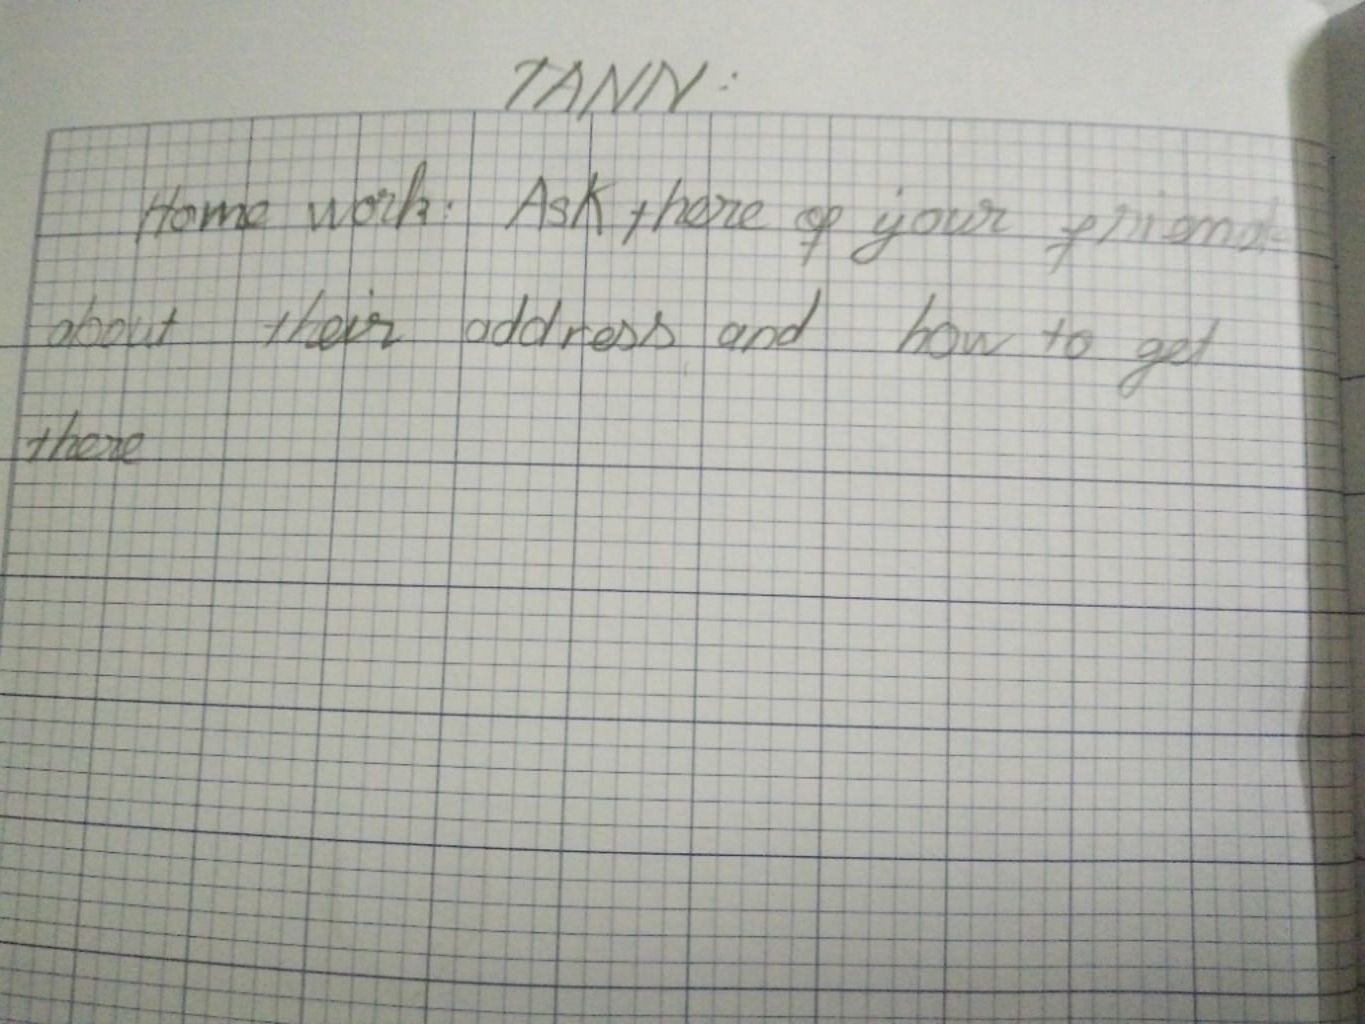 TANN:
Home work: Ask there of your friend
about their address and how to get
there